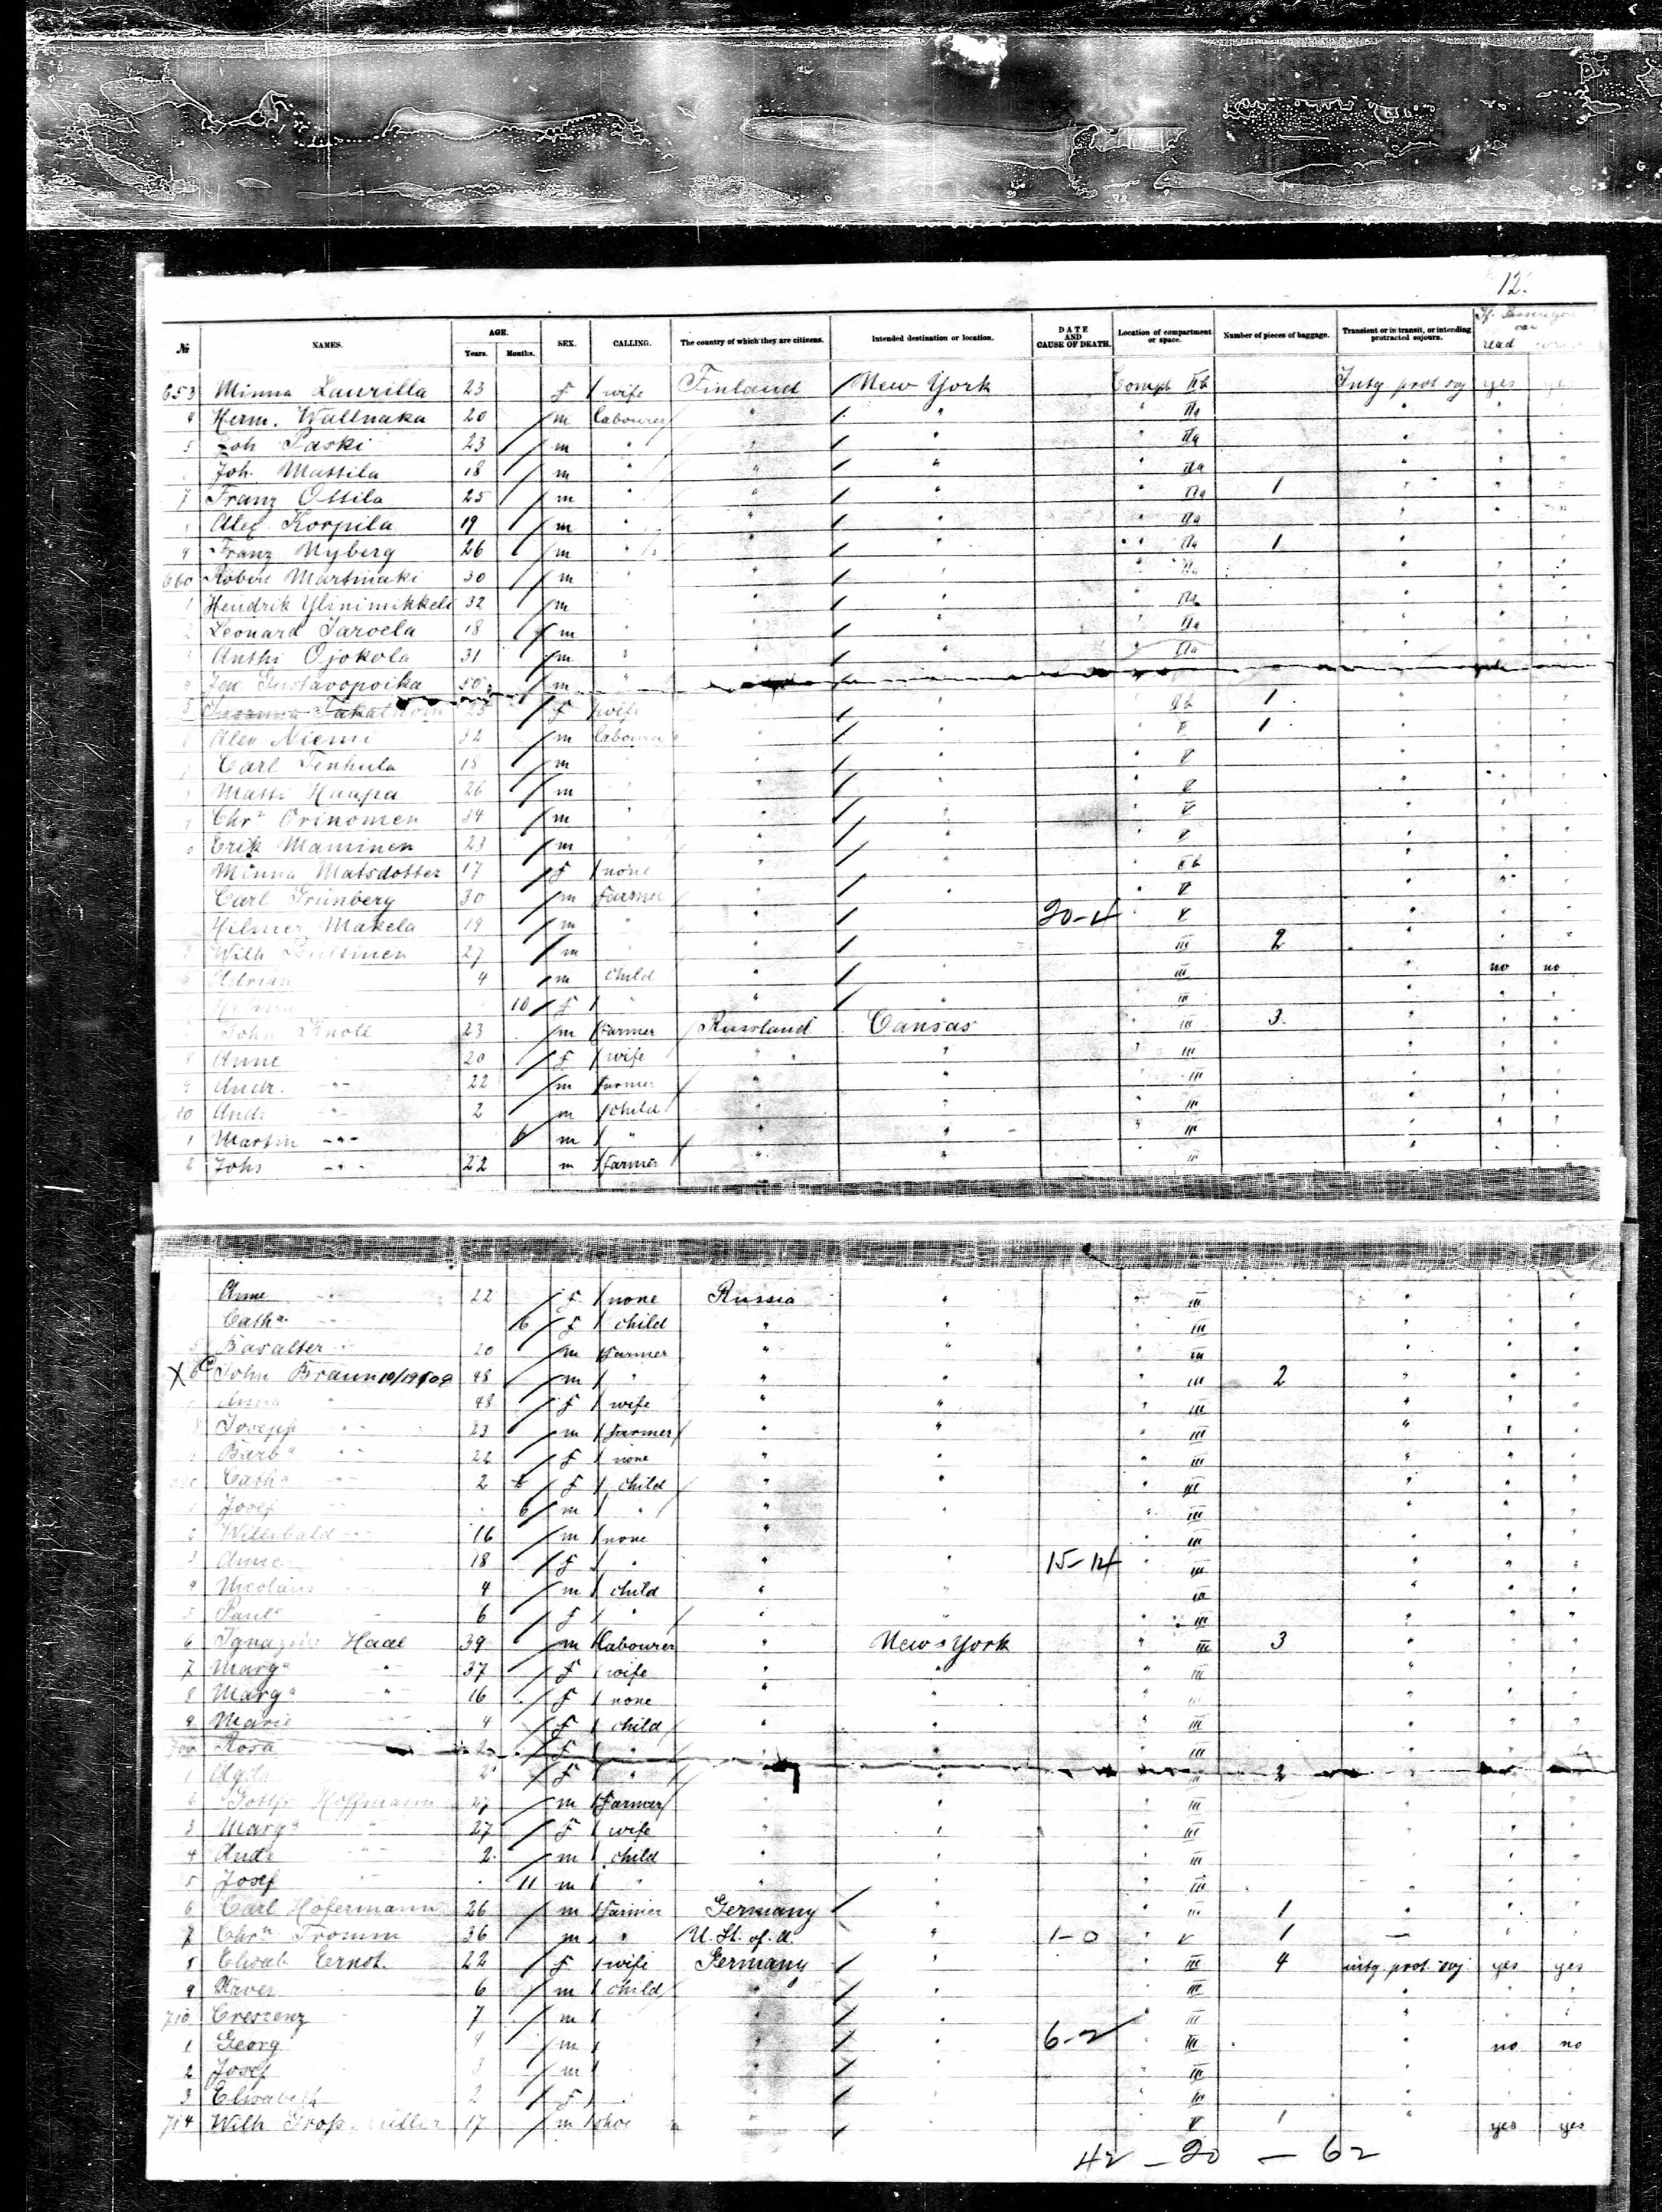 12.
№ NAMES. AGE. Years. Months. SEX. CALLING. The country of which they are citizens. Intended destination or location. DATE AND CAUSE OF DEATH. Location of compartment or space. Number of pieces of baggage. Transient or in transit, or intending protracted sojourn. read
653 Minna Laurilla 23 f wife Finland New York Comph IIb Intg prot soj yes
4 Herm. Wallnaka 20 m labourer " " " IIa " " "
5 Joh Paski 23 m " " " " IIa " " "
Joh. Mattila 18 m " " " " IIa " " "
7 Franz Ossila 25 m " " " " IIa 1 " " "
Alex Korpila 19 m " " " " IIa " " "
9 Franz Nyberg 26 m " " " " IIa 1 " " "
660 Robert Martinaki 30 m " " " " IIa " " "
1 Hendrik Ylinimikkela 32 m " " " IIa " " "
2 Leonard Jaroela 18 m " " " " IIa " " "
Anthi Ojokola 31 m " " " " IIa " " "
4 Gustavopoika 50 m "
25 f wife IIb 1 " "
Alex Niemi 32 m labourer " " " V 1 " " "
Carl Tenhula 18 m " " " V " " "
Matts Haapa 26 m " " " V " " "
Chrn Orinomen 34 m " " " " V " "
Erik Maminen 23 m " " " " V " " "
Minna Matsdotter 17 f none " " " IIb " " "
Carl Grünberg 30 m Farmer " " " V " " "
Hilmer Makela 19 m " " 20-4 " V " " "
Wilh 27 m " " III 2 " " "
Adrian 4 m child " " III " no no
10 f " " " III " " "
John Knoll 23 m Farmer Russland Cansas " III 3 " " "
8 Anne 20 f wife " " " III " " "
9 Andr. " 22 m Farmer " " " III " " "
10 Andr " 2 m child " " " III " " "
1 Martin " 6 m " " " " III " " "
2 Johs " 22 m Farmer " " III " " "
Anne " 22 f none Russia " " III " "
Catha " 6 f child " " III " " "
5 Basalter " 20 m Farmer " " III " " "
X 6 John Braun 10/19/09 48 m " " " " III 2 " " "
Anna " 48 f wife " " " III " " "
8 Joseph " 23 m Farmer " " " III " " "
Barba " 22 f none " " " III " " "
Catha " 2 f child " " " III " " "
1 Josef " 6 m " " " " III " " "
2 Willibald " 16 m none " III " " "
3 Anne " 18 f " " " 15-14 " III " " "
4 Nicolaus 4 m child " " III " " "
5 Paula 6 f " " " III " " "
6 Haal 39 m labourer " New York " III 3 " " "
7 Marga " 37 f wife " " " III " " "
8 Marga " 16 f none " " " " "
9 Marie " 4 f child " " III " " "
700 Rosa 2 f " " " III " " "
1 2 f " " " III 2
2 Joseph Hoffmann 27 m Farmer " " III " " "
3 Marga " 27 f wife " " " III " " "
4 Andr " 2 m child " " " III " " "
5 Josef " 11 m " " " III " " "
6 Carl Hofermann 26 m Farmer Germany " " III 1 " " "
7 Chrn Fromm 36 m " U. St. of. A. " 1-0 " V 1 — " "
8 Elisab. Ernst. 22 f wife Germany " " III 4 intg. prot. soj. yes yes
9 Xaver 6 m child " " " III " " "
710 Crescenz 7 m " " " III " " "
1 Georg 4 m " " 6-2 " III " no no
2 Josef 3 m " " " III " " "
3 Elisabeth 2 f " " " III " " "
714 Wilh 17 m " " V 1 " yes yes
42 - 20 - 62